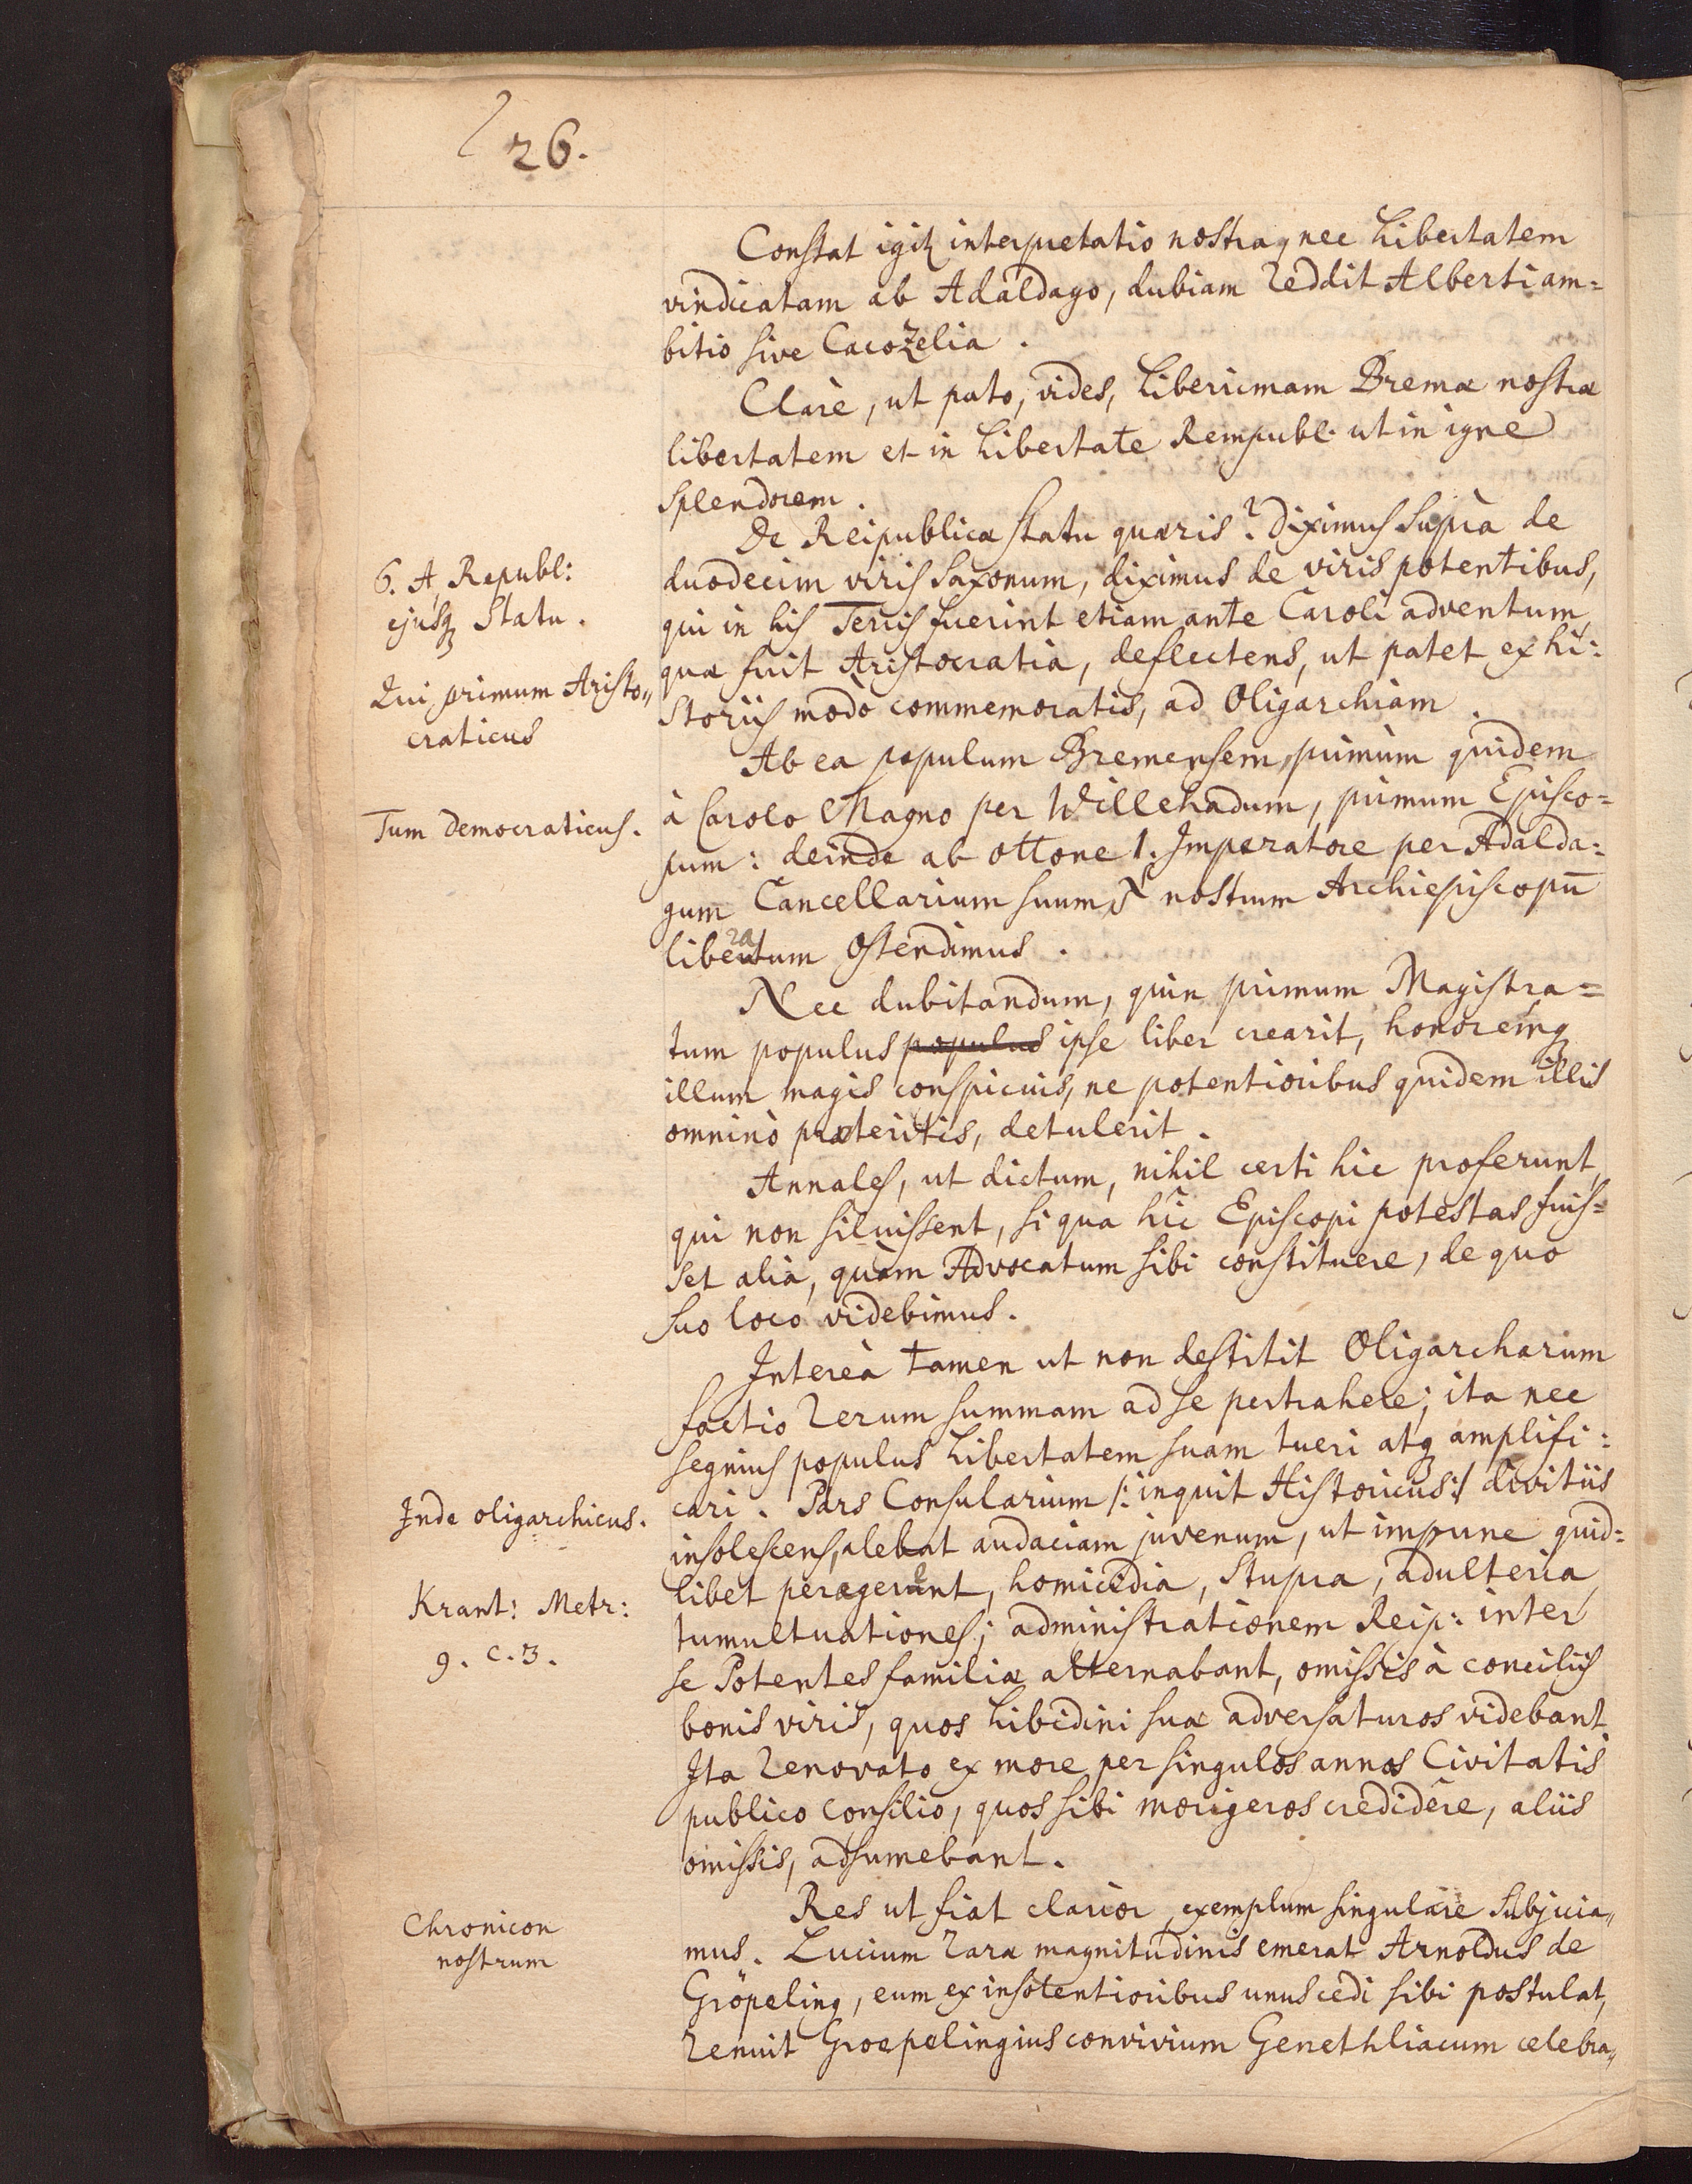 26.
Constat igitꝫ interpretatio nostra, nec Libertatem
vindicatam ab Adaldago, dubiam reddit Alberti am=
bitio sive Cacozelia.
Clarè, ut puto, vides, Liberrimam Bremæ nostræ
libertatem et in Libertate Rempubl. ut in igne
splendorem.
De Reipublicæ statu quæris? diximus suprà de
6. A Republ:
duodecim viris Saxonum, diximus de viris potentibus,
ejusqꝫ Statu.
qui in his Terris fuerint etiam ante Caroli adventum,
Qui primum Aristo„
craticus
quæ fuit Aristocratia, deflectens, ut patet ex hi=
storiis modò commemoratis, ad Oligarchiam.
Ab ea populum Bremensem, primùm quidem
Tum democraticus.
à Carolo Magno per Willehadum, primum Episco=
pum: deinde ab Ottone 1. Imperatore per Adalda=
gum Cancellarium suum, & nostrum Archiepiscopū
liberatum ostendimus.
Nec dubitandum, quin primum Magistra=
tum populus populus ipse liber crearit, honoremqꝫ
illum magis conspicuis, ne potentioribus quidem illis
omninò præteritis, detulerit.
Annales, ut dictum, nihil certi hic proferunt,
qui non siluissent, si qua hîc Episcopi potestas fuis=
set alia, quàm Advocatum sibi constituere, de quo
suo loco videbimus.
Intereà tamen ut non destitit Oligarcharum
factio rerum summam ad se pertrahere; ita nec
segnius populus Libertatem suam tueri atqꝫ amplifi=
Inde oligarchicus.
cari. Pars Consularium /: inquit Historicus :/ divitiis
insolescens, alebat audaciam juvenum, ut impune quid=
Krant: Metr:
9. c. 3.
libet peragerent, homicidia, stupra, adulteria,
tumultuationes; administrationem Reip: inter
se Potentes familiæ alternabant, omissis à conciliis
bonis viris, quos Libidini suæ adversaturos videbant.
Ita renovato ex more per singulos annos Civitatis
publico consilio, quos sibi morigeros credidêre, aliis
omissis, adsumebant.
Chronicon
nostrum
Res ut fiat clarior, exemplum singulare subjicia„
mus. Lucium raræ magnitudinis emerat Arnoldus de
Gröpeling, eum ex insolentioribus unus cedi sibi postulat,
renuit Groepelingius convivium Genethliacum celebra„